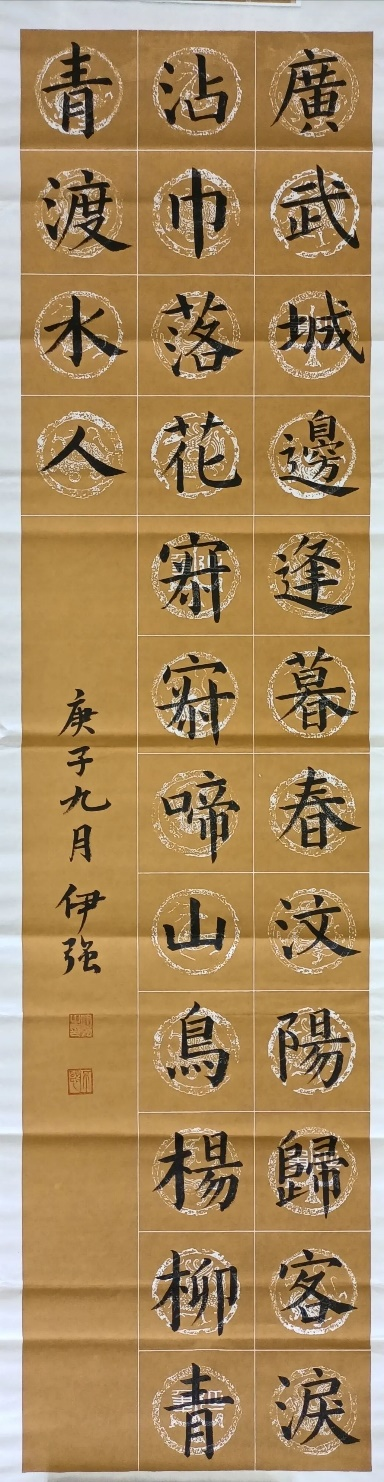 廣武城邊逢暮春汶陽歸客淚
沾巾落花㝛㝛啼山鳥楊柳青
青渡水人
庚子九月伊强